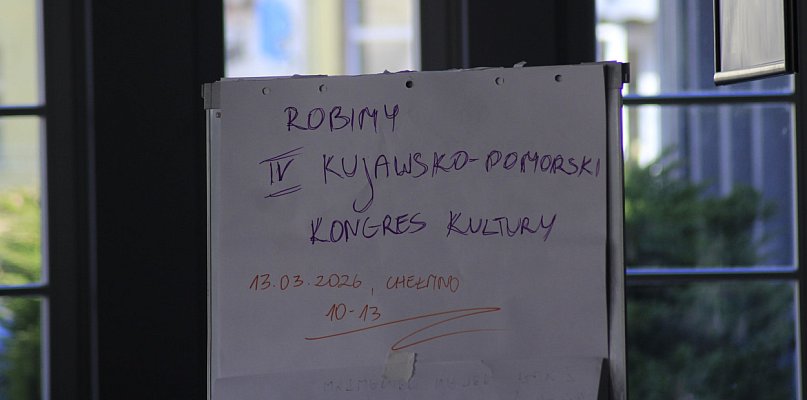 ROBIMY
IV KUJAWSKO-POMORSKI
KONGRES KULTURY
13.03.2026, CHEŁMNO
10-13